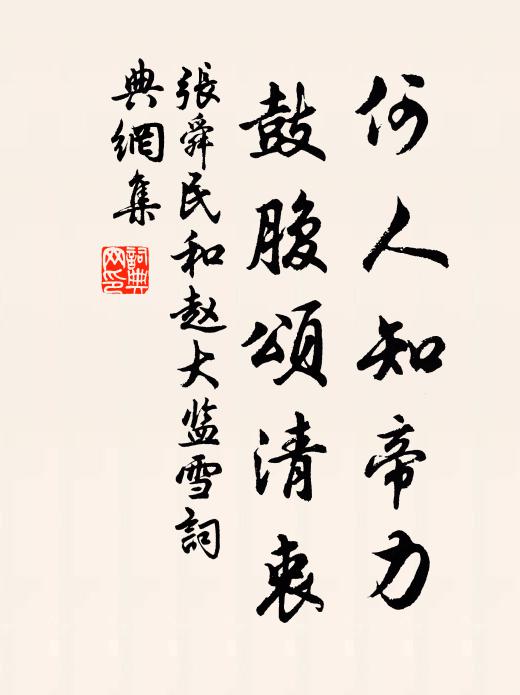 何人知帝力
鼓腹頌清衷
張舜民和赵大监雪詞
典網集
詞典網印